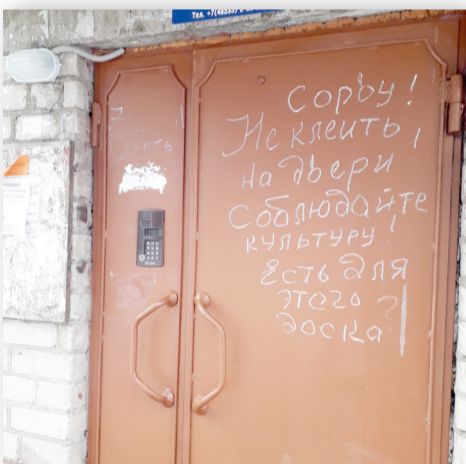 Тел. +7(48533)
Сорву!
Не клеить,
на двери
Соблюдайте
культуру!
Есть для
этого
доска!